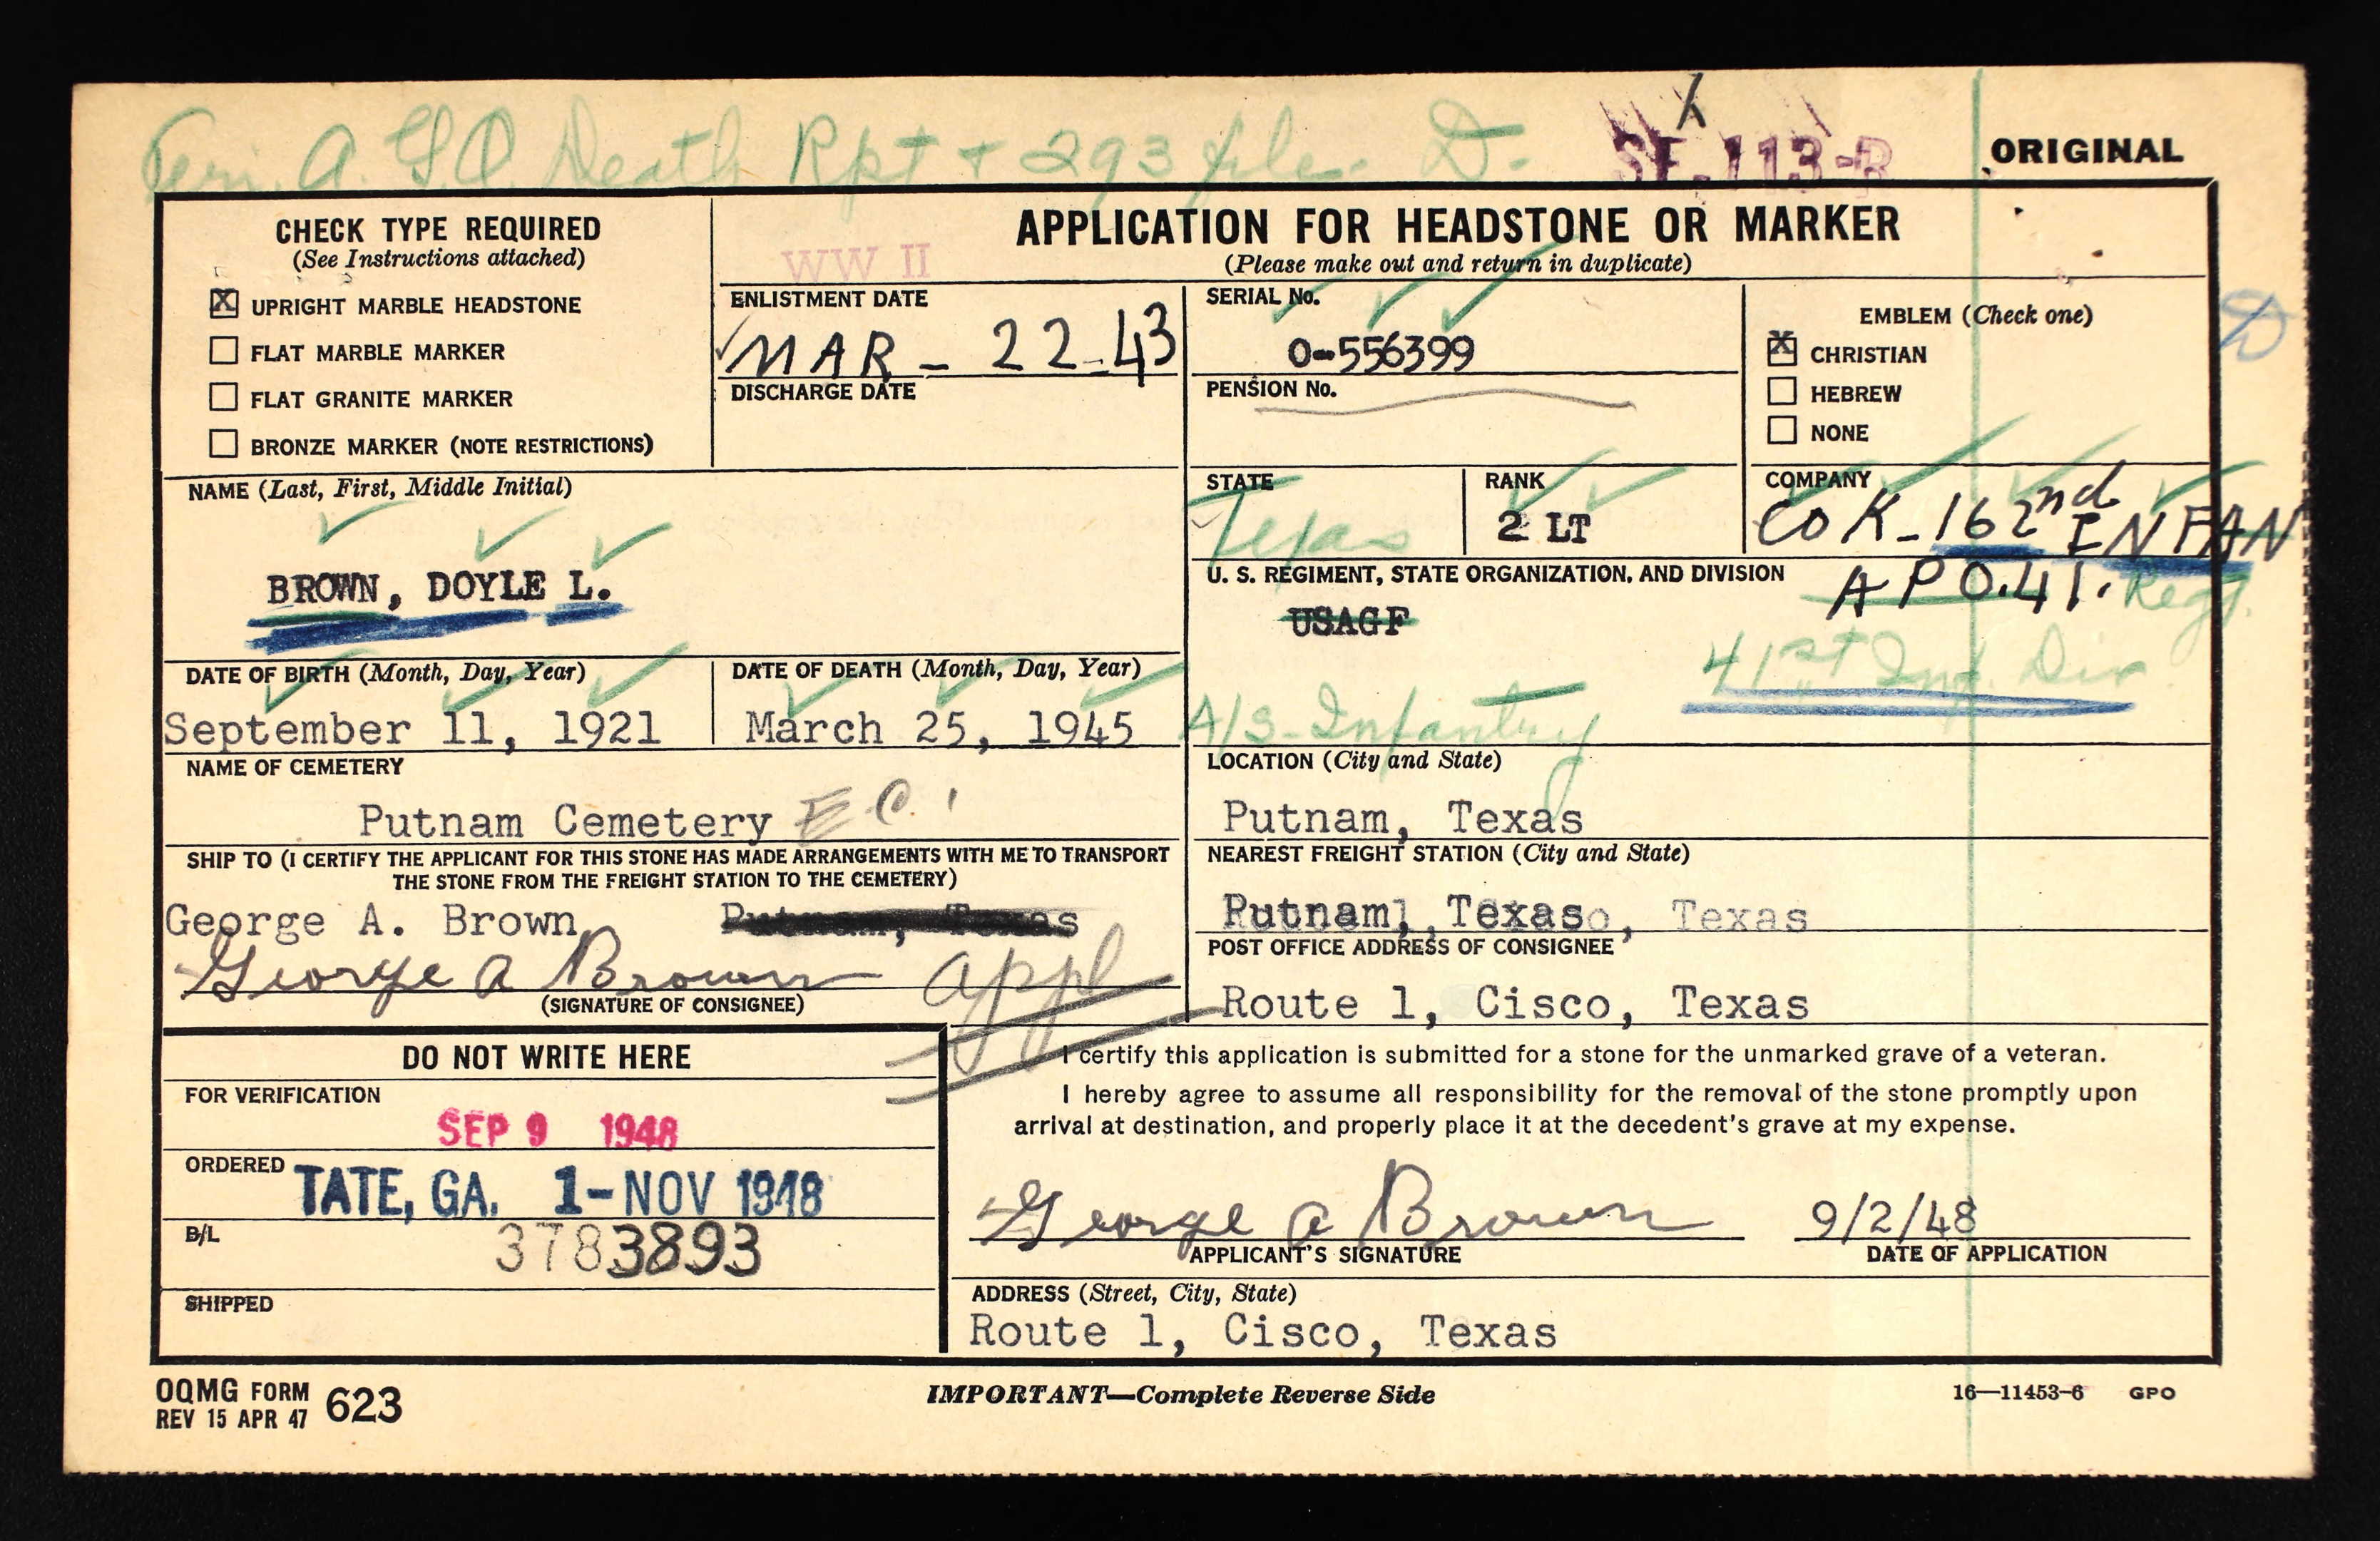 A.G.O. Death Rpt + 293 file. D.
SF. 113-R
X
ORIGINAL
CHECK TYPE REQUIRED
(See Instructions attached)
X UPRIGHT MARBLE HEADSTONE
FLAT MARBLE MARKER
FLAT GRANITE MARKER
BRONZE MARKER (NOTE RESTRICTIONS)
APPLICATION FOR HEADSTONE OR MARKER
(Please make out and return in duplicate)
WW II
ENLISTMENT DATE
MAR - 22-43
DISCHARGE DATE
SERIAL No.
O-556399
PENSION No.
EMBLEM (Check one)
X CHRISTIAN
HEBREW
NONE
D
NAME (Last, First, Middle Initial)
BROWN, DOYLE L.
STATE
Texas
RANK
2 LT
COMPANY
CO K-162nd INFAN
APO.41. Regt.
U. S. REGIMENT, STATE ORGANIZATION, AND DIVISION
USAGF
41st Inf. Div.
A/S-Infantry
DATE OF BIRTH (Month, Day, Year)
September 11, 1921
DATE OF DEATH (Month, Day, Year)
March 25, 1945
NAME OF CEMETERY
Putnam Cemetery E C.
LOCATION (City and State)
Putnam, Texas
SHIP TO (I CERTIFY THE APPLICANT FOR THIS STONE HAS MADE ARRANGEMENTS WITH ME TO TRANSPORT
THE STONE FROM THE FREIGHT STATION TO THE CEMETERY)
George A. Brown Putnam, Texas
George A Brown appl
(SIGNATURE OF CONSIGNEE)
NEAREST FREIGHT STATION (City and State)
Putnam, Texas, Texas
POST OFFICE ADDRESS OF CONSIGNEE
Route 1, Cisco, Texas
DO NOT WRITE HERE
FOR VERIFICATION
SEP 9 1948
ORDERED
TATE, GA. 1-NOV 1948
B/L
3783893
SHIPPED
I certify this application is submitted for a stone for the unmarked grave of a veteran.
I hereby agree to assume all responsibility for the removal of the stone promptly upon
arrival at destination, and properly place it at the decedent's grave at my expense.
George A Brown
APPLICANT'S SIGNATURE
9/2/48
DATE OF APPLICATION
ADDRESS (Street, City, State)
Route 1, Cisco, Texas
OQMG FORM 623
REV 15 APR 47
IMPORTANT—Complete Reverse Side
16—11453-6 GPO